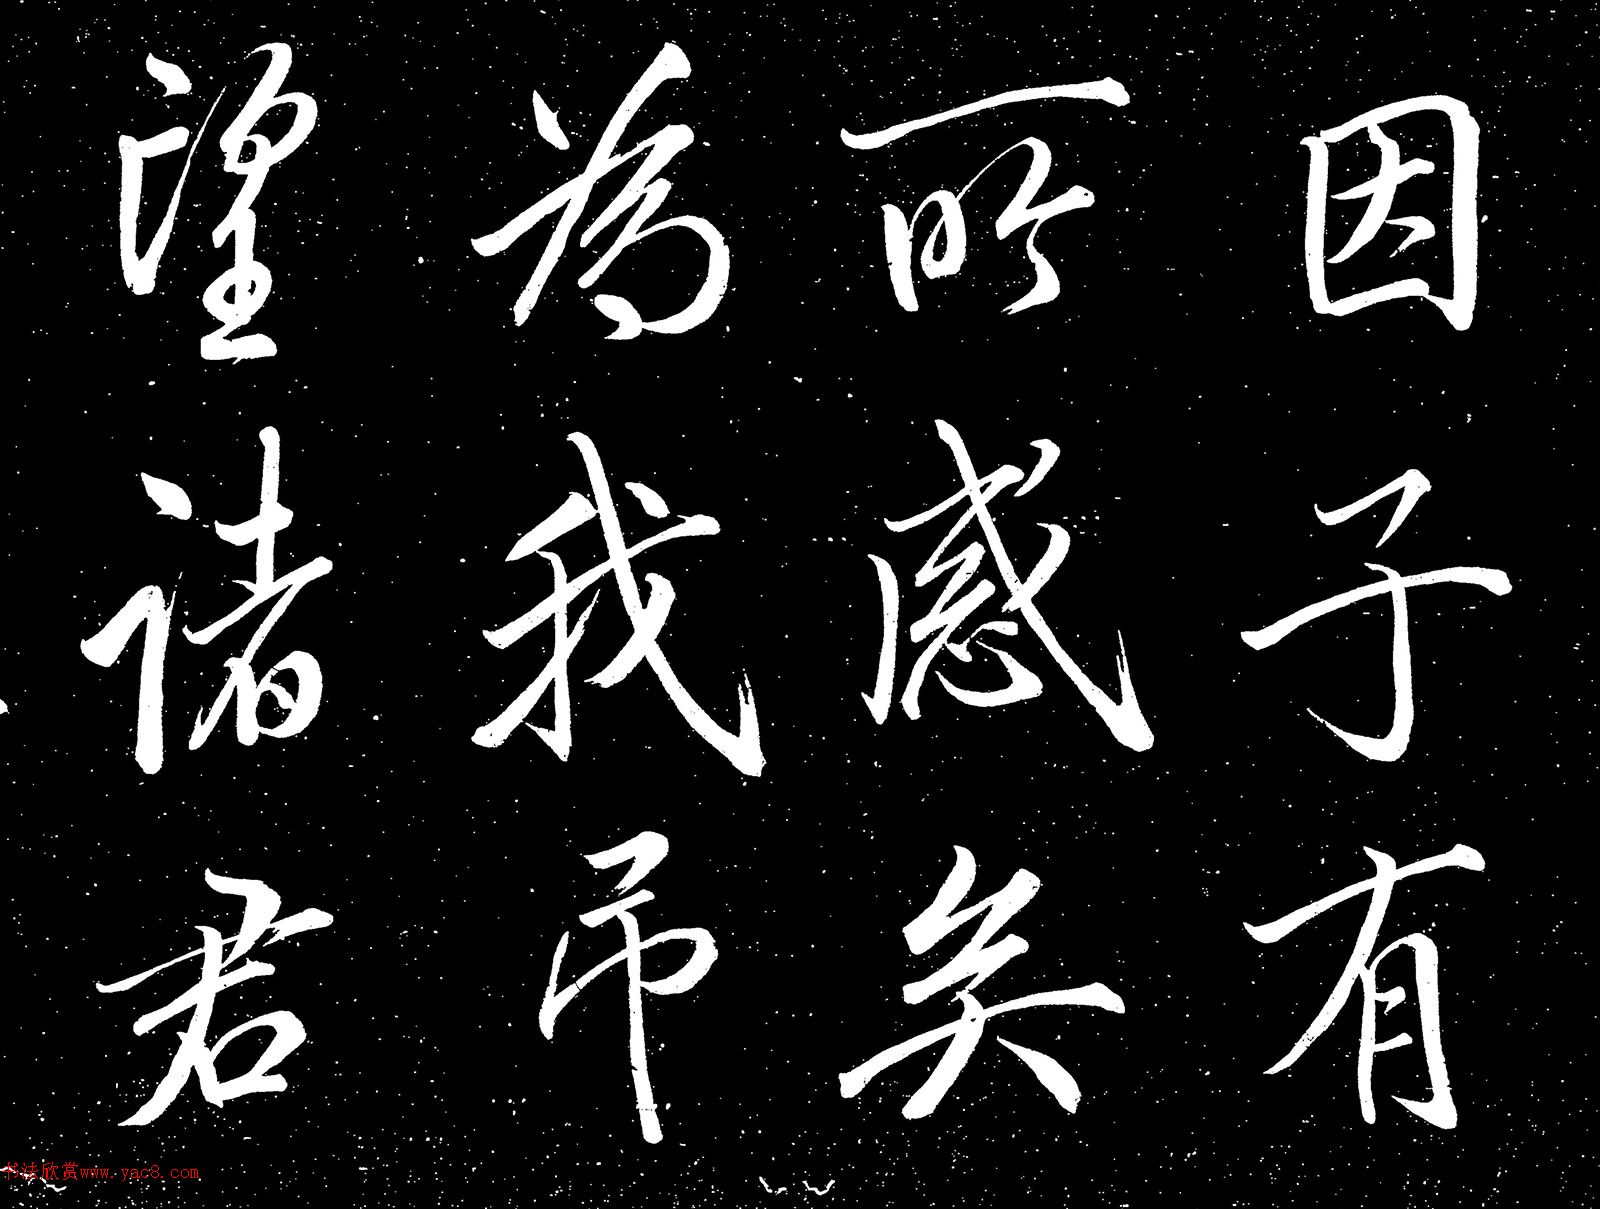 因子有
所感矣
為我吊
望諸君
书法欣赏www.yac8.com